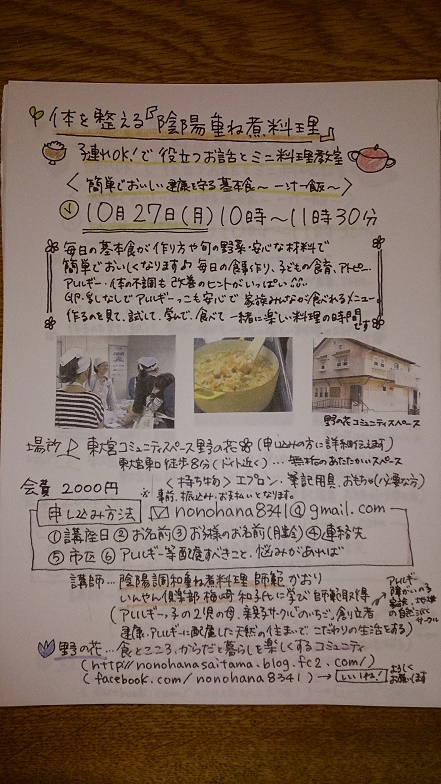 体を整える『陰陽重ね煮料理』
子連れOK!で役立つお話とミニ料理教室
〈簡単でおいしい健康を守る基本食〜一汁一飯〜〉
10月27日(月) 10時〜11時30分
毎日の基本食が作り方や旬の野菜・安心な材料で
簡単でおいしくなります♪ 毎日の食事作り、子どもの食育、アトピー、
アレルギー・体の不調も改善のヒントがいっぱい
卵・乳なしでアレルギーっこも安心で家族みんなが食べれるメニュー
作るのを見て、試して、学んで、食べて一緒に楽しい料理の時間です
野の花コミュニティスペース
場所 東大宮コミュニティスペース野の花(申し込みの方に詳細伝えます)
東大宮東口徒歩8分 … 無垢のあたたかいスペース
会費 2000円 〈持ち物〉エプロン、筆記用具、おもちゃ(必要な方)
※事前振込み・お支払いとなります。
申し込み方法 nonohana8341@gmail.com
①講座日 ②お名前 ③お子様のお名前(月齢) ④連絡先
⑤市区 ⑥アレルギー等配慮すべきこと、悩みがあれば
講師… 陰陽調和重ね煮料理 師範 かおり
いんやん倶楽部 梅崎和子氏に学び 師範取得
(アレルギーっ子の2児の母、親子サークル「のいちご」創立者
健康、アレルギーに配慮した天然の住まいで、こだわりの生活をする)
野の花…食とこころ、からだと暮らしを楽しくするコミュニティ
(http://nonohanasaitama.blog.fc2.com/)
(facebook.com/nonohana8341) → いいね! よろしくお願いします